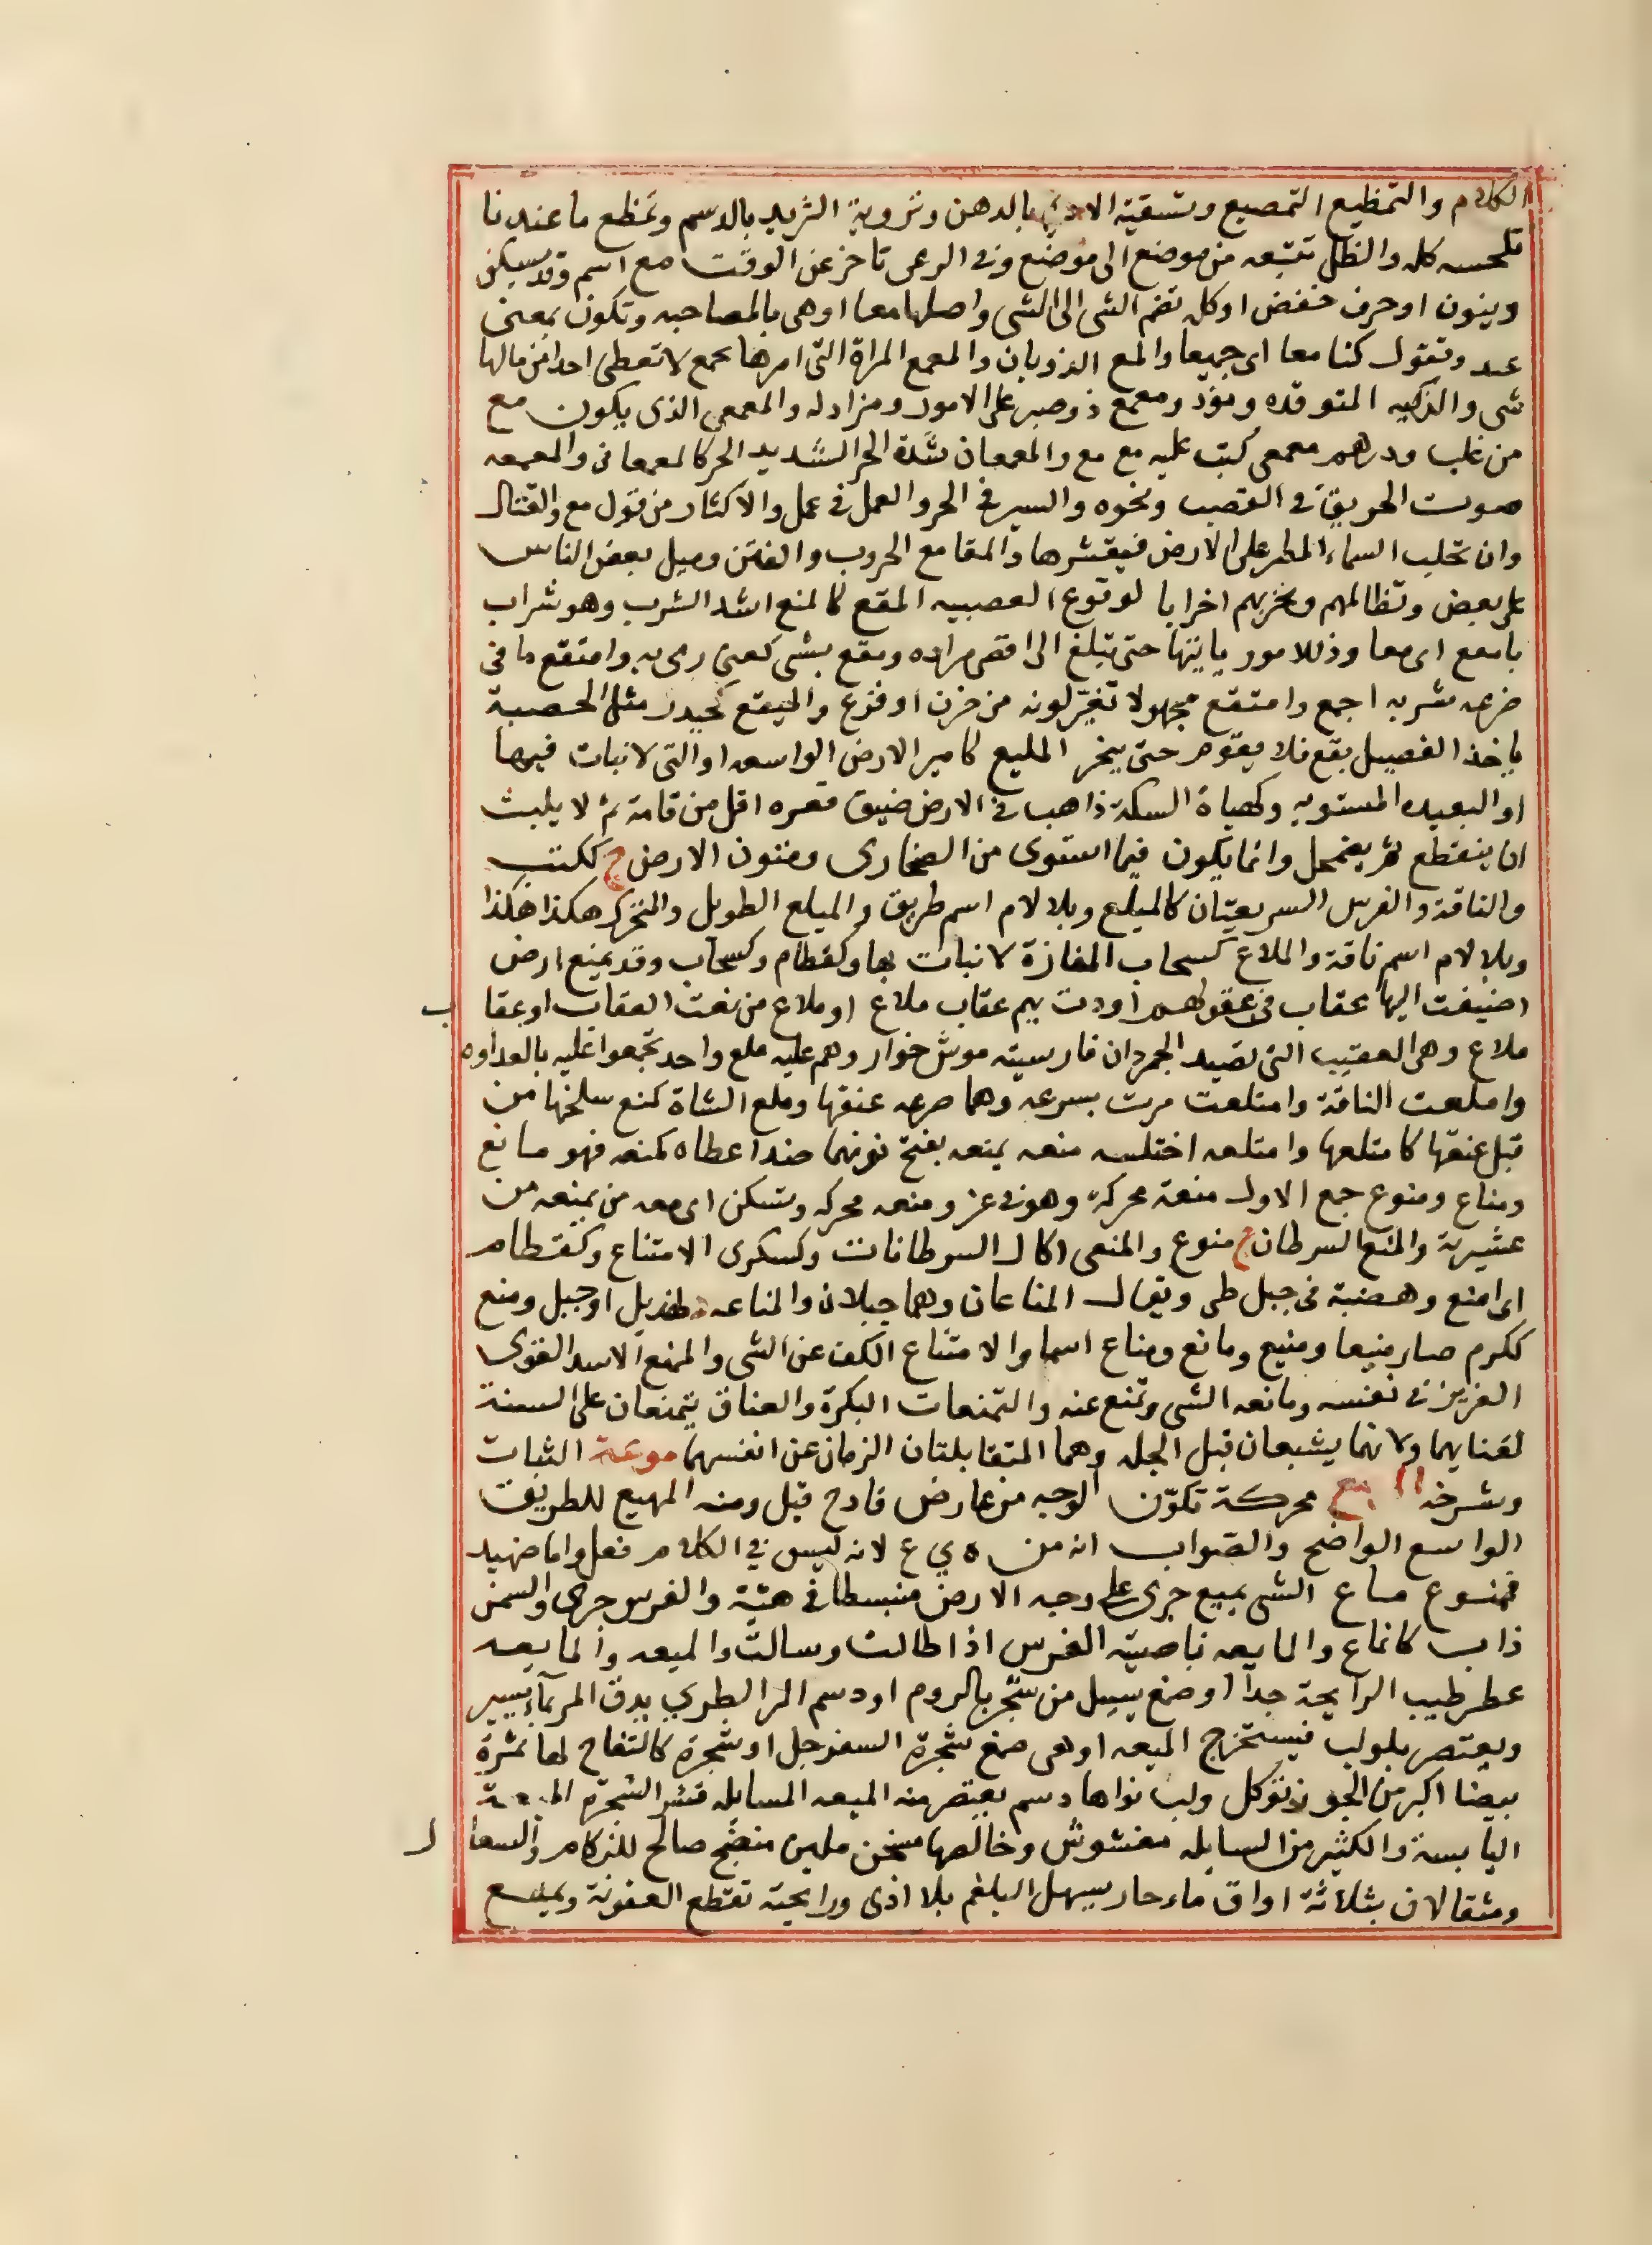 الكلام والتمظيع التمصيع وتسقية الاديم بالدهن وتروية الثريد بالدسم وتمظع ما عندنا
تلحسه كله والظل تتبعه من موضع الى موضع وفى الرعى تاخر عن الوقت مع اسم وقد يسكن
وينون او حرف خفض او كله تضم الشى الى الشى واصلها معا او هى بالمصاحبه وتكون بمعنى
عند وتقول كنا معا اى جميعا والمع الذوبان والمعمع المراة التى امرها مجمع لا تعطى احدا من مالها
شى والذكيه المتوقده ومعمع ذو صبر على الامور ومزاوله والمعمعى الذى يكون مع
من غلب ودرهم معمعى كتب عليه مع مع والمعمعان شدة الحر الشديد الحر كالمعمعانى والمعمعه
صوت الحريق فى القصب ونحوه والسير فى الحر والعمل فى عمل والاكثار من قول مع والقتال
وان تحلب السماء المطر على الارض فيقشرها والمقامع الحروب والفتن وميل بعض الناس
على بعض وتظالمهم وتحزبهم احزابا لوقوع العصبيه المقع كالمنع اشد الشرب وهو شراب
بامعع اى معا وذللامور ياتيها حتى تبلغ الى اقصى مراده ومقع بشى كعنى رمى به وامتقع ما فى
ضرعه شربه اجمع وامتقع مجهولا تغير لونه من حزن او فزع والميقع كحيدر مثل الحصبة
ياخذ الفصيل يقع فلا يقوم حتى ينحر المليع كامير الارض الواسعه او التى لا نبات فيها
او البعيده المستويه وكهياة السكة ذاهب فى الارض ضيق قعره اقل من قامة ثم لا يلبث
ان ينقطع ثم يضمحل وانما يكون فيما استوى من الصحارى ومتون الارض ج ككتب
والناقة والفرس السريعتان كالميلع وبلا لام اسم طريق والميلع الطويل والمتحرك هكذا هكذا
وبلا لام اسم ناقة والملاع كسحاب المفازة لا نبات بها وكقطام وكسحاب وقد يمنع ارض
اضيفت اليها عقاب فى قولهم اودت بهم عقاب ملاع او ملاع من نعت العقاب او عقاب
ملاع وهى العقيب التى تصيد الجرذان فارسيته موش خوار وهم عليه ملع واحد تجمعوا عليه بالعداوه
واملعت الناقة وامتلعت مرت بسرعه وهما صرعه عنقها وملع الشاة كمنع سلخها من
قبل عنقها كامتلعها وامتلعه اختلسه منعه يمنعه بفتح نونيهما ضد اعطاه كمنعه فهو مانع
ومناع ومنوع جمع الاول منعة محركة وهو فى عز ومنعه محركه وتسكن اى معه من يمنعه من
عشيرته والمنع السرطان ج منوع والمنعى اكال السرطانات وكسكرى الامتناع وكقطام
اى امنع وهضبة فى جبل طى ويقال المناعان وهما جبلان والمناعه لهذيل او جبل ومنع
ككرم صار منيعا ومنيع ومانع ومناع اسما والامتناع الكف عن الشى والممنع الاسد القوى
العزيز فى نفسه ومانعه الشى وتمنع عنه والتمنعات البكرة والعناق يتمنعان على السنة
لفنايهما ولانهما يشبعان قبل الجله وهما المتقابلتان الزمان عن انفسهما موعة الثبات
وشرخه محركة تكون الوجه من عارض فادح قيل ومنه المهيع للطريق
الواسع الواضح والصواب انه من ه ي ع لانه ليس فى الكلام فعل واما ضهيد
فمنوع ماع الشى يميع جرى على وجه الارض منبسطا فى هيئة والفرس جرى والسمن
ذاب كانماع والمايعه ناصية الفرس اذا طالت وسالت والميعه والمايعه
عطر طيب الرايحة جدا او صمغ يسيل من شجر بالروم او دسم المر الطرى يدق المر بماء يسير
ويعتصر بلولب فيستخرج الميعه او هى صمغ شجرة السفرجل او شجرة كالتفاح لها ثمرة
بيضا اكبر من الجوز تؤكل ولب نواها دسم يعتصر منه الميعه السايله قشر الشجرة الميعة
اليابسة والكثير من السايله مغشوش وخالصها مسخن ملين منضج صالح للزكام والسعال
ومثقالان بثلاثة اواق ماء حار يسهل البلغم بلا اذى ورايحته تقطع العفونة وتميع